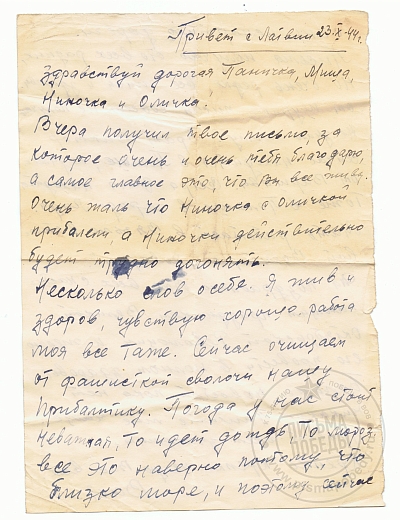 Привет с Латвии 23.X-44г.
Здравствуй дорогая Паничка, Миша,
Ниночка и Оличка!
Вчера получил твое письмо, за
которое очень и очень тебя благодарю,
а самое главное это, что Вы все живы.
Очень жаль что Ниночка с Оличкой
приболели, а Ниночки действительно
будет трудно догонять.
Несколько слов о себе. Я жив и
здоров, чувствую хорошо работа
моя все таже. Сейчас очищаем
от фашисткой сволочи нашу
Прибалтику. Погода у нас стоит
неважная, то идет дождь то мороз
все это наверно потому, что
близко море, и поэтому сейчас